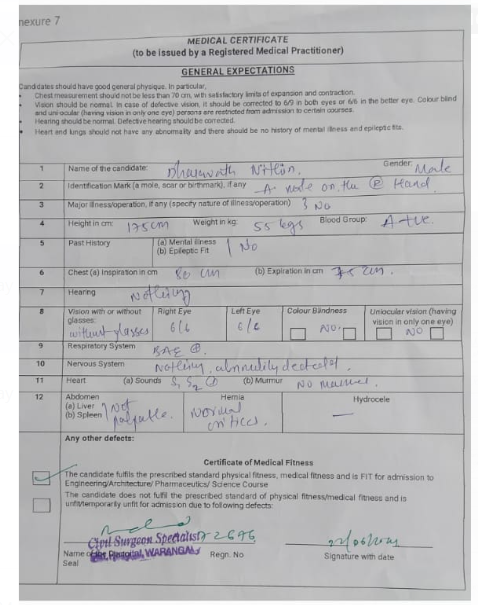 nexure 7
MEDICAL CERTIFICATE
(to be issued by a Registered Medical Practitioner)
GENERAL EXPECTATIONS
Candidates should have good general physique. In particular,
• Chest measurement should not be less than 70 cm, with satisfactory limits of expansion and contraction.
• Vision should be normal. In case of defective vision, it should be corrected to 6/9 in both eyes or 6/6 in the better eye. Colour blind
and uniocular (having vision in only one eye) persons are restricted from admission to certain courses.
• Hearing should be normal. Defective hearing should be corrected.
• Heart and lungs should not have any abnormality and there should be no history of mental illness and epileptic fits.
1 Name of the candidate: Nithin Gender: Male
2 Identification Mark (a mole, scar or birthmark), if any A mole on the Hand
3 Major illness/operation, if any (specify nature of illness/operation) No
4 Height in cm: 175cm Weight in kg: 55 kgs Blood Group: A +ve.
5 Past History (a) Mental illness
(b) Epileptic Fit No
6 Chest (a) Inspiration in cm 80 cm (b) Expiration in cm 75 cm.
7 Hearing
8 Vision with or without glasses: without glasses Right Eye 6/6 Left Eye 6/6 Colour Blindness NO. Uniocular vision (having vision in only one eye) NO
9 Respiratory System BAE
10 Nervous System detected.
11 Heart (a) Sounds S1 S2 (b) Murmur No murmur.
12 Abdomen
(a) Liver
(b) Spleen Not palpable. Hernia Normal Hydrocele —
Any other defects:
Certificate of Medical Fitness
✓ The candidate fulfils the prescribed standard physical fitness, medical fitness and is FIT for admission to
Engineering/Architecture/ Pharmaceutics/ Science Course
The candidate does not fulfil the prescribed standard of physical fitness/medical fitness and is
unfit/temporarily unfit for admission due to following defects:
Civil Surgeon Specialist 72696
WARANGAL
Name Regn. No Signature with date
Seal